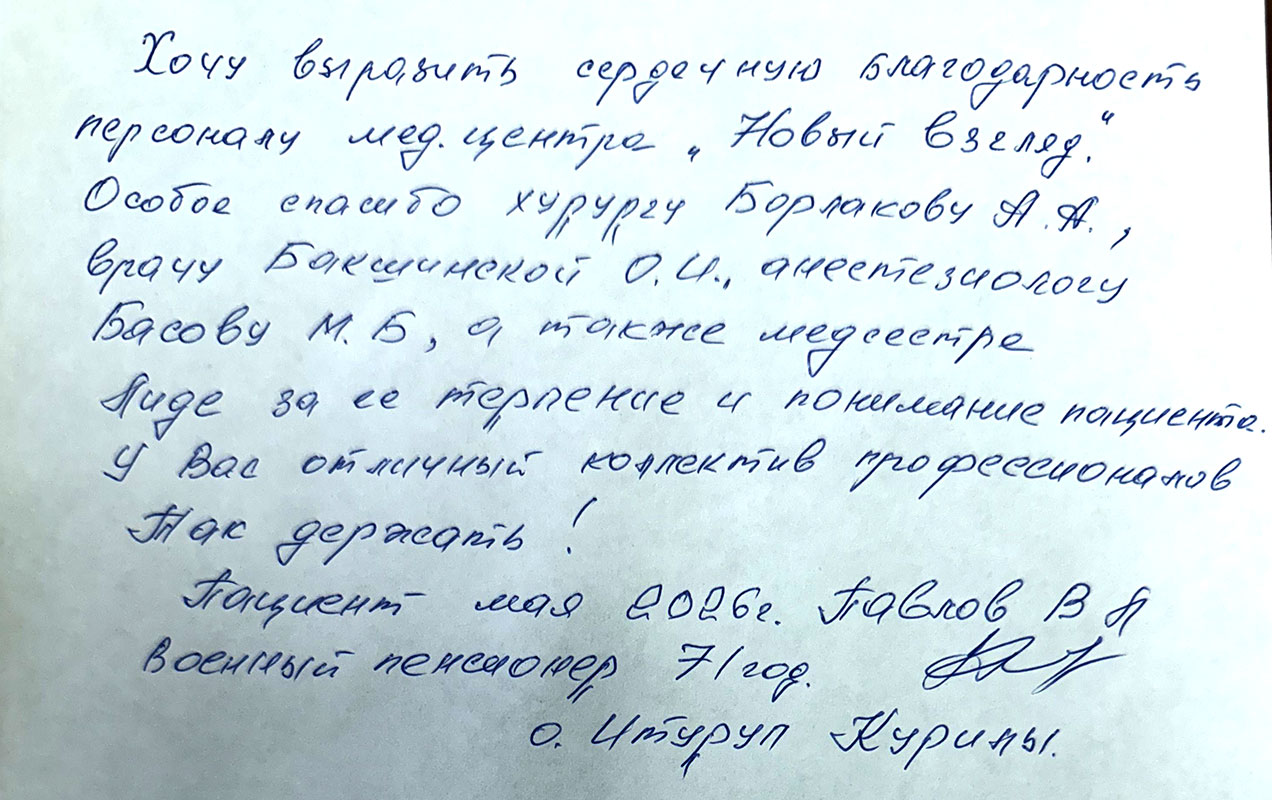 Хочу выразить сердечную благодарность
персоналу мед. центра „Новый взгляд."
Особое спасибо хурургу Борлакову А.А.,
врачу Бакшинской О.И., анестезиологу
Басову М.Б, а также медсестре
Лиде за ее терпение и понимание пациента.
У Вас отличный коллектив профессионалов
Так держать!
Пациент мая 2026г. Павлов В А
военный пенсионер 71 год.
о. Итуруп Курилы.